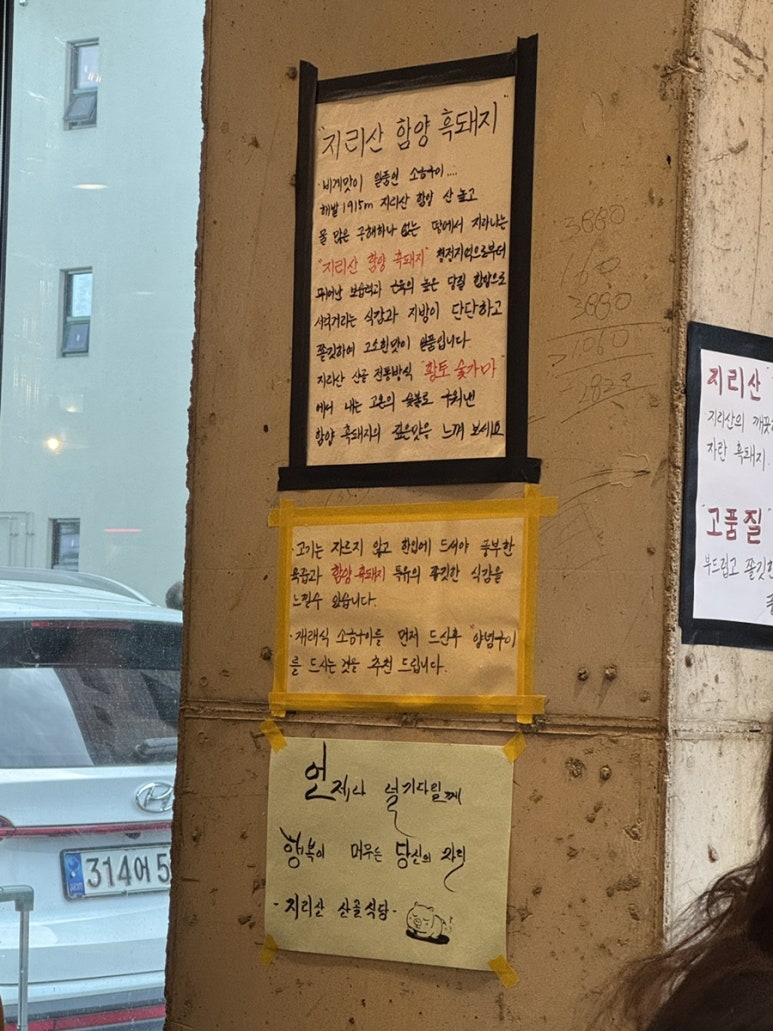 "지리산 함양 흑돼지"
· 비계맛이 일품인 소금구이....
해발 1915m 지리산 함양 산 높고
물 맑은 공해하나 없는 땅에서 자라나는
"지리산 함양 흑돼지" 청정지역으로부터
뛰어난 보습력과 근육의 높은 당질 함량으로
사각거리는 식감과 지방이 단단하고
쫄깃하여 고소한맛이 일품입니다
지리산 산골 전통방식 "황토 숯가마"
에서 내는 고온의 숯불로 구워낸
함양 흑돼지의 깊은맛을 느껴 보세요
· 고기는 자르지 않고 한입에 드셔야 풍부한
육즙과 함양 흑돼지 특유의 쫄깃한 식감을
느낄수 있습니다.
· 재래식 소금구이를 먼저 드신후 "양념구이
를 드시는것을 추천 드립니다.
언제나
행복이 머무는 당신의 자리
- 지리산 산골식당 -
지리산
지리산의
자란 흑돼지.
"고품질
부드럽고
3880
3880
314어 5